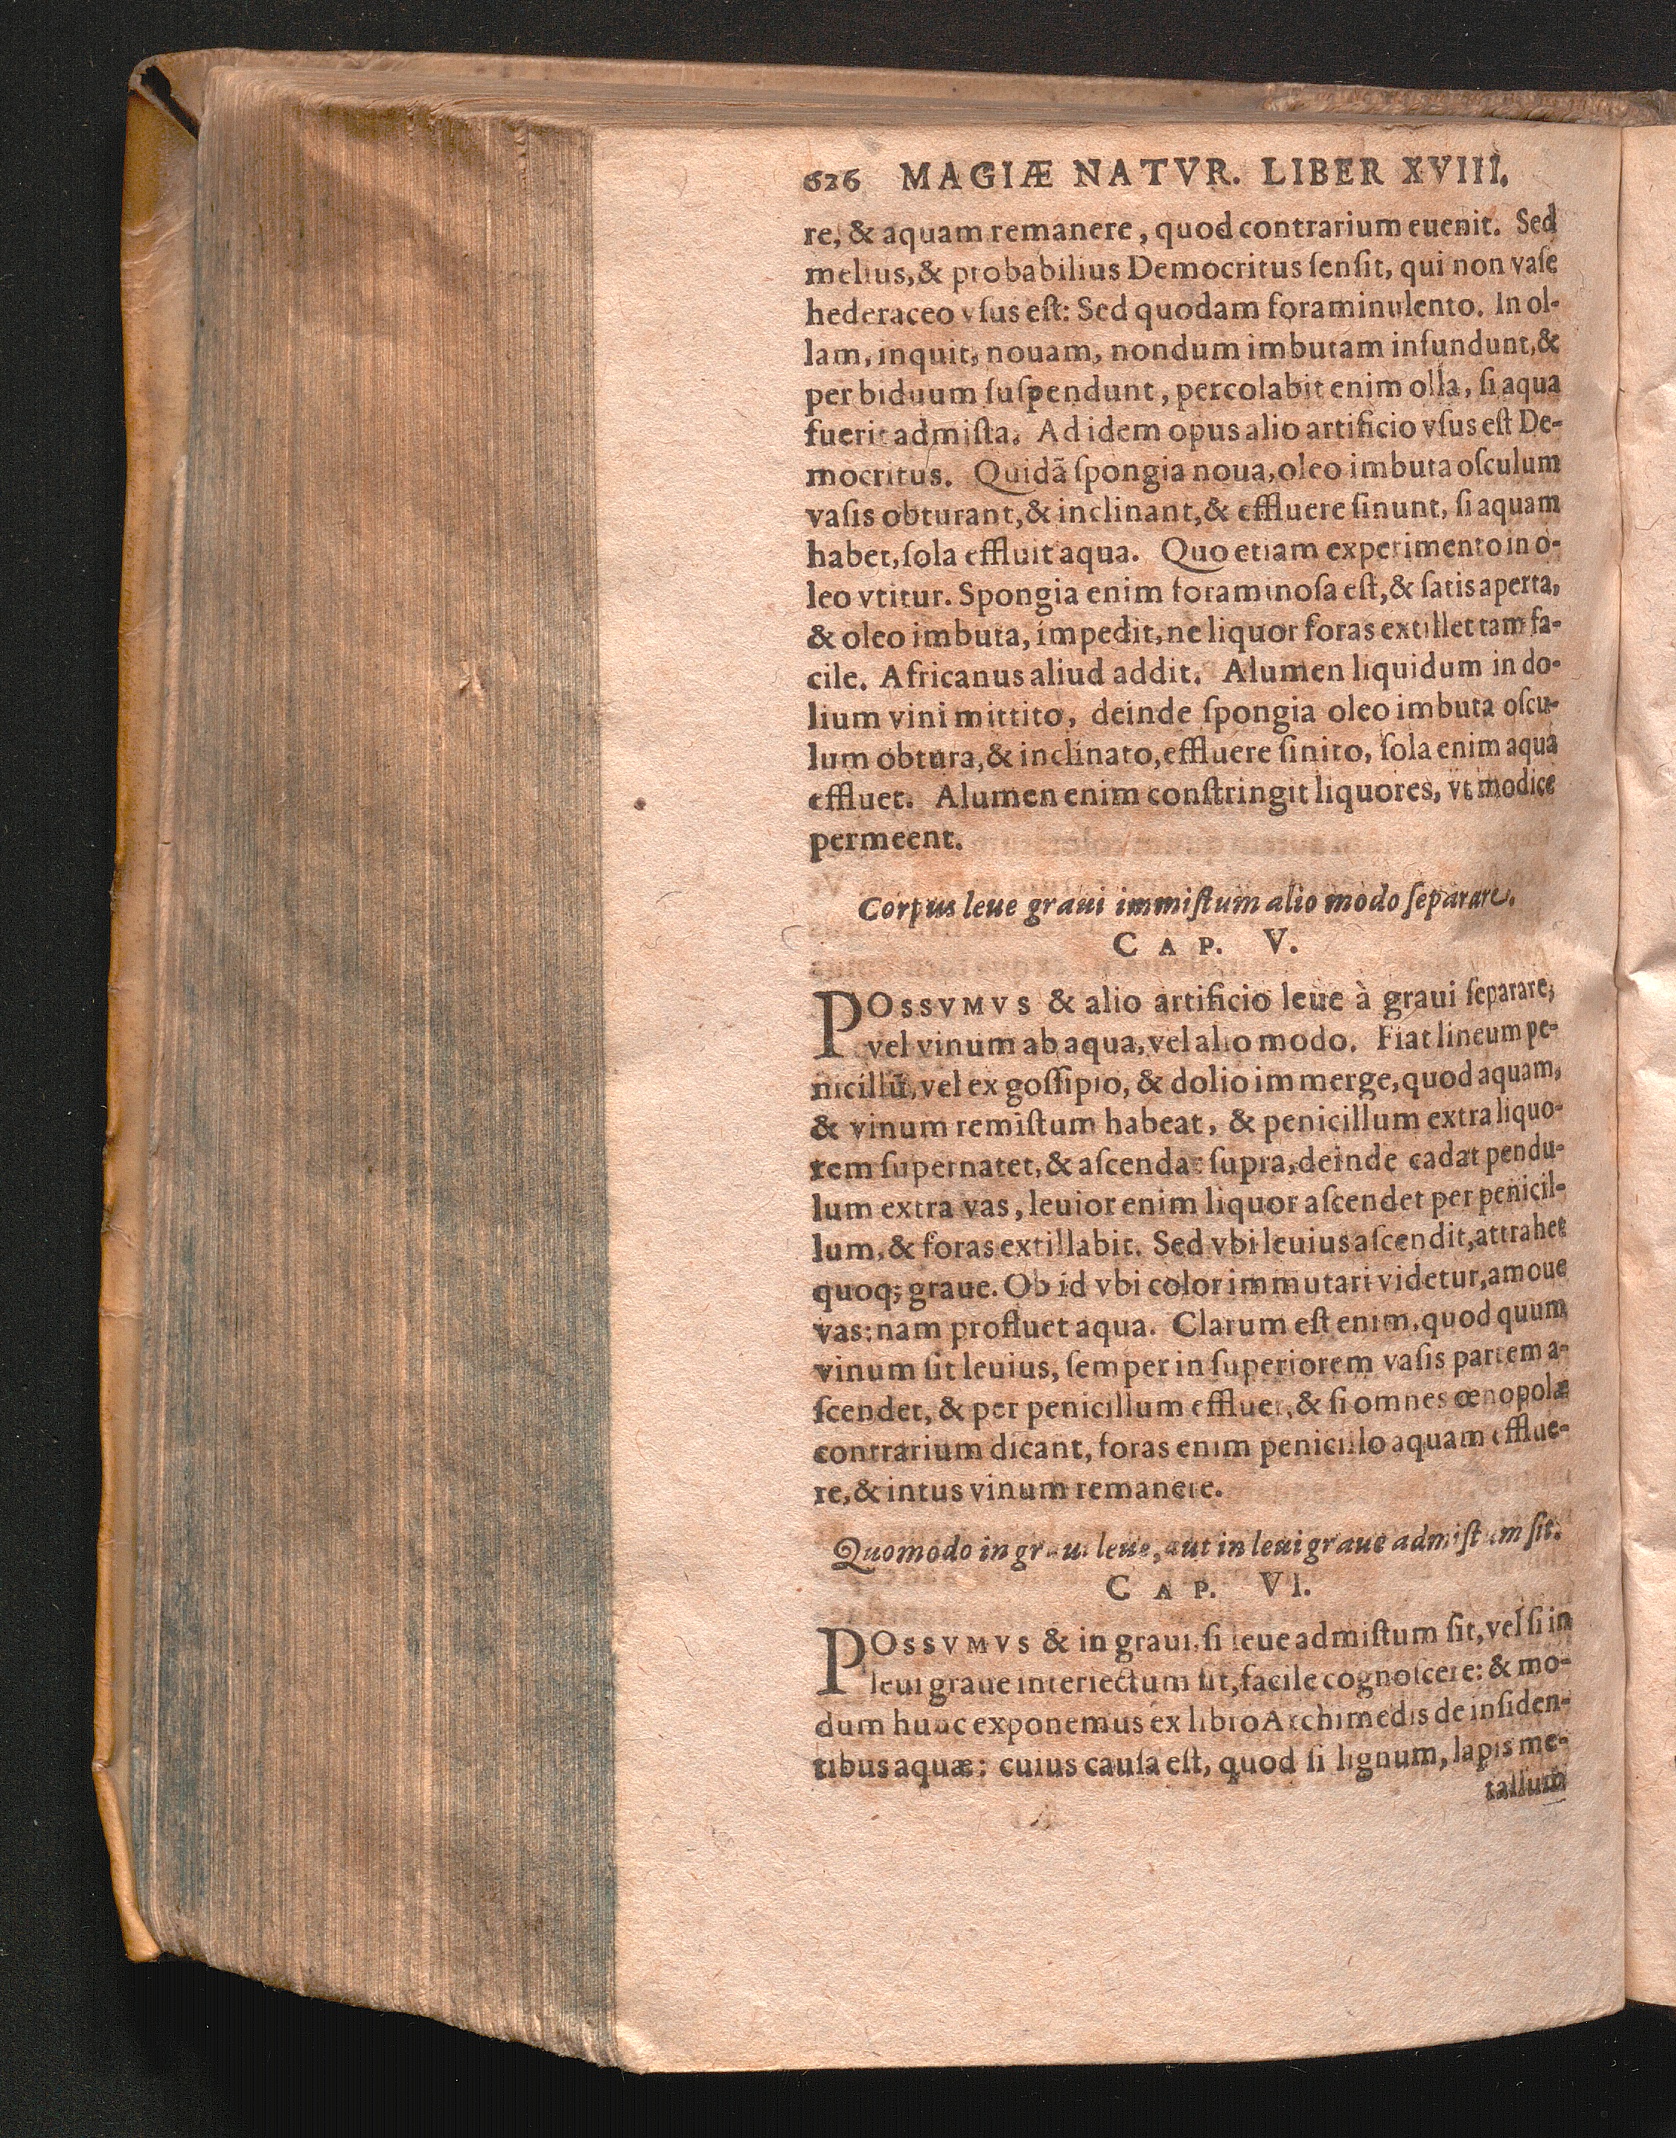 626 MAGIÆ NATVR. LIBER XVIII.
re, & aquam remanere, quod contrarium euenit. Sed
melius, & probabilius Democritus ſenſit, qui non vaſe
hederaceo vſus eſt: Sed quodam foraminulento. In ol-
lam, inquit, nouam, nondum imbutam infundunt, &
per biduum ſuſpendunt, percolabit enim olla, ſi aqua
fuerit admiſta. Ad idem opus alio artificio vſus eſt De-
mocritus. Quidã ſpongia noua, oleo imbuta oſculum
vaſis obturant, & inclinant, & effluere ſinunt, ſi aquam
habet, ſola effluit aqua. Quo etiam experimento in o-
leo vtitur. Spongia enim foraminoſa eſt, & ſatis aperta,
& oleo imbuta, impedit, ne liquor foras extillet tam fa-
cile. Africanus aliud addit. Alumen liquidum in do-
lium vini mittito, deinde ſpongia oleo imbuta oſcu-
lum obtura, & inclinato, effluere ſinito, ſola enim aqua
effluet. Alumen enim conſtringit liquores, vt modice
permeent.
Corpus leue graui immiſtum alio modo ſeparare.
CAP. V.
POSSVMVS & alio artificio leue à graui ſeparare,
vel vinum ab aqua, vel alio modo. Fiat lineum pe-
nicillũ, vel ex goſſipio, & dolio immerge, quod aquam,
& vinum remiſtum habeat, & penicillum extra liquo-
rem ſupernatet, & aſcendat ſupra, deinde cadat pendu-
lum extra vas, leuior enim liquor aſcendet per penicil-
lum, & foras extillabit. Sed vbi leuius aſcendit, attrahet
quoq; graue. Ob id vbi color immutari videtur, amoue
vas: nam profluet aqua. Clarum eſt enim, quod quum
vinum ſit leuius, ſemper in ſuperiorem vaſis partem a-
ſcendet, & per penicillum effluet, & ſi omnes œnopolæ
contrarium dicant, foras enim penicillo aquam efflue-
re, & intus vinum remanere.
Quomodo in graui leue, aut in leui graue admiſtum ſit.
CAP. VI.
POSSVMVS & in graui, ſi leue admiſtum ſit, vel ſi in
leui graue interiectum ſit, facile cognoſcere: & mo-
dum hunc exponemus ex libro Archimedis de inſiden-
tibus aquæ; cuius cauſa eſt, quod ſi lignum, lapis me-
tallum